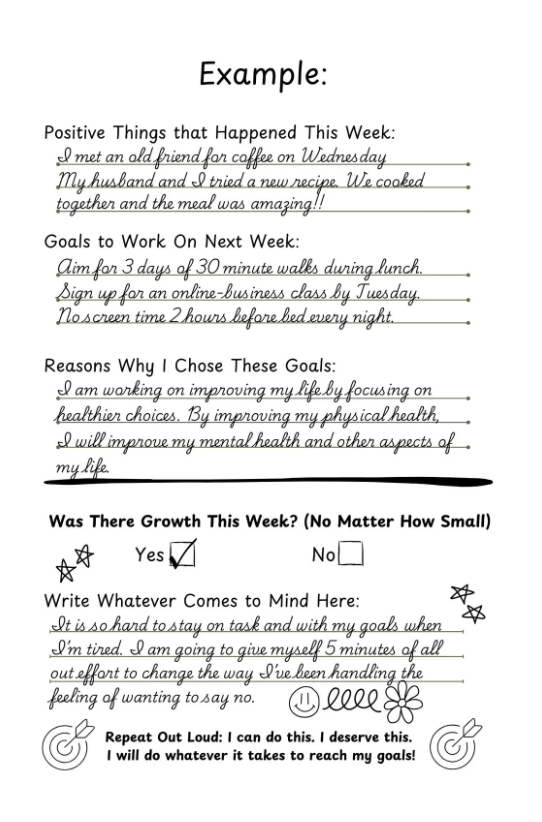 Example:
Positive Things that Happened This Week:
I met an old friend for coffee on Wednesday
My husband and I tried a new recipe. We cooked
together and the meal was amazing!!
Goals to Work On Next Week:
Aim for 3 days of 30 minute walks during lunch.
Sign up for an online-business class by Tuesday.
No screen time 2 hours before bed every night.
Reasons Why I Chose These Goals:
I am working on improving my life by focusing on
healthier choices. By improving my physical health,
I will improve my mental health and other aspects of
my life.
Was There Growth This Week? (No Matter How Small)
Yes No
Write Whatever Comes to Mind Here:
It is so hard to stay on task and with my goals when
I'm tired. I am going to give myself 5 minutes of all
out effort to change the way I've been handling the
feeling of wanting to say no.
Repeat Out Loud: I can do this. I deserve this.
I will do whatever it takes to reach my goals!